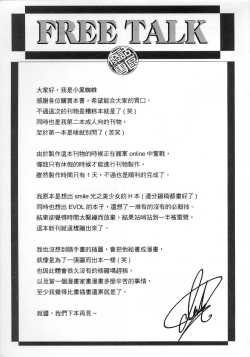 FREE TALK
大家好，我是小鼠蜘蛛
感謝各位購買本書，希望能合大家的胃口，
不過這次的刊物是糟糕本就是了 (笑)
同時也是我第二本成人向的刊物，
至於第一本是啥就別問了 (苦笑)
由於製作這本刊物的時候正在國軍 online 中奮戰，
導致只有休假的時候才能進行刊物製作，
雖然製作時間只有 1 天，不過也是順利的完成了。
我原本是想出 smile 光之美少女的 H 本
同時也想出 EVOL 的本子，還想了一堆有的沒有的必殺技，
結果卻覺得時間太緊繃而放棄，結果
這本新刊就這樣蹦出來了。
我也沒想到隨手畫的插圖，會把他給畫成漫畫，
就像是為了一張圖而出本一樣 (笑)
也因此體會我久沒有的修羅場趕稿，
以及當一個漫畫家畫漫畫多麼辛苦的事情，
至少我覺得比畫插畫還累就是了。
就醬，我們下本再見～